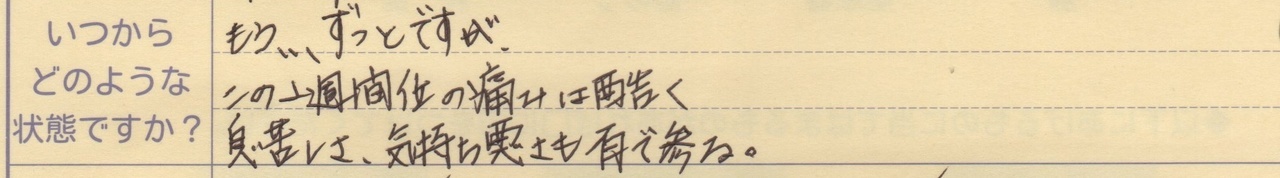 いつから
どのような
状態ですか?
もう、、、ずっとですが、
この2週間位の痛みは酷く
息苦しさ、気持ち悪さも有で参る。